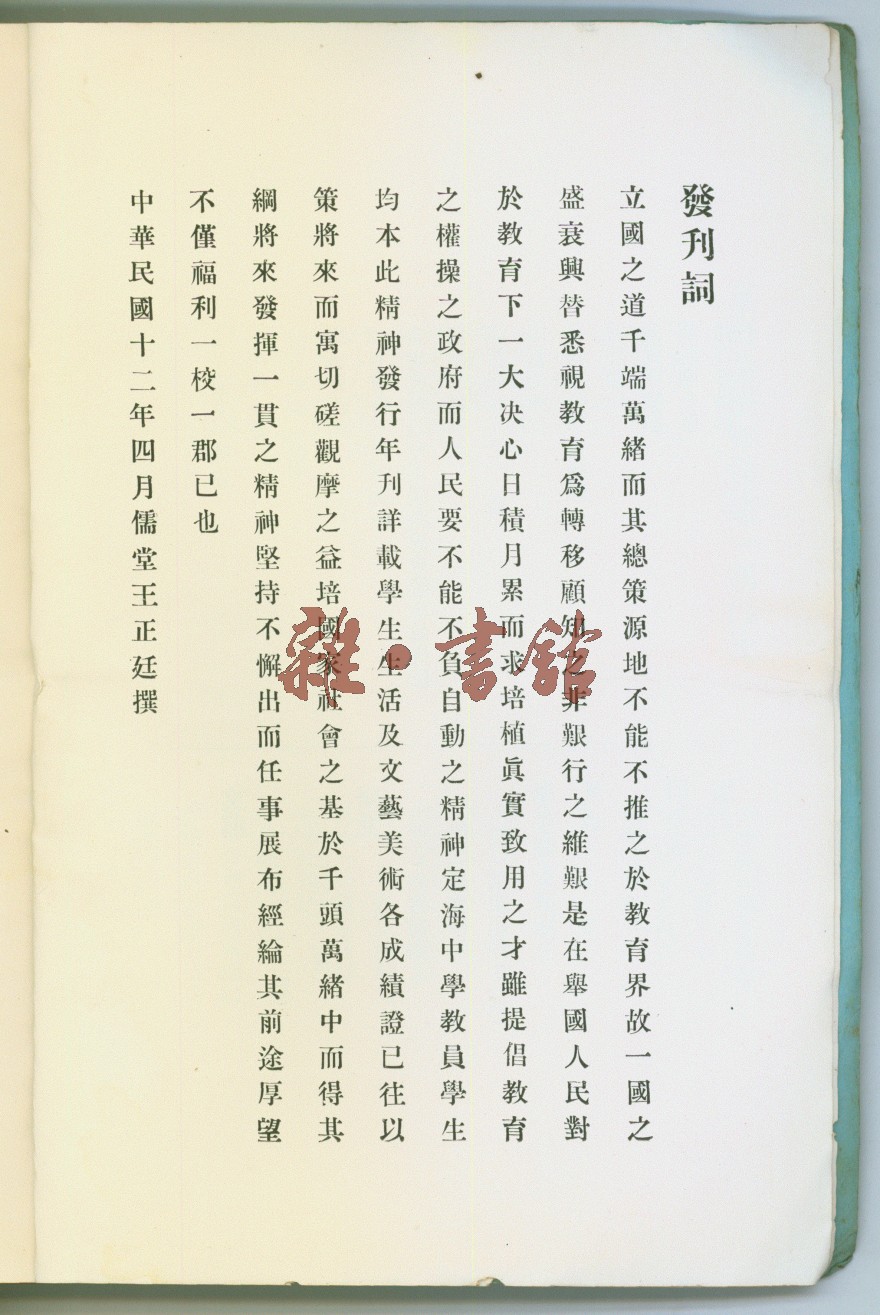 發刊詞
立國之道千端萬緒而其總策源地不能不推之於教育界故一國之
盛衰興替悉視教育爲轉移顧知之非艱行之維艱是在舉國人民對
於教育下一大決心日積月累而求培植眞實致用之才雖提倡教育
之權操之政府而人民要不能不負自動之精神定海中學教員學生
均本此精神發行年刊詳載學生生活及文藝美術各成績證已往以
策將來而寓切磋觀摩之益培國家社會之基於千頭萬緒中而得其
綱將來發揮一貫之精神堅持不懈出而任事展布經綸其前途厚望
不僅福利一校一郡已也
中華民國十二年四月儒堂王正廷撰
雜·書館